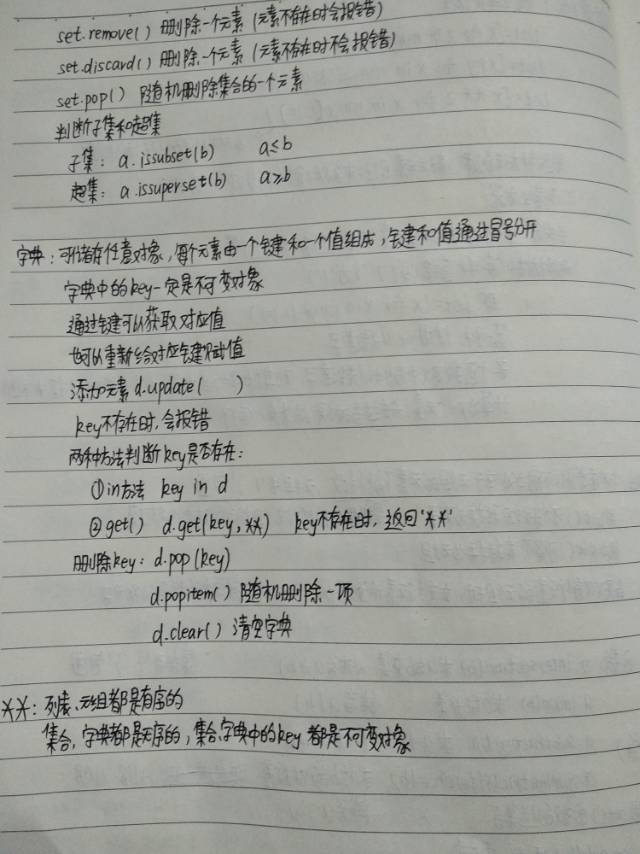 set.remove() 删除一个元素 (元素不存在时会报错)
set.discard() 删除一个元素 (元素不存在时不会报错)
set.pop() 随机删除集合的一个元素
判断子集和超集
子集: a.issubset(b) a≤b
超集: a.issuperset(b) a≥b
字典: 可储存任意对象, 每个元素由一个键和一个值组成, 键和值通过冒号分开
字典中的key一定是不可变对象
通过键可以获取对应值
也可以重新给对应键赋值
添加元素 d.update( )
key不存在时, 会报错
两种方法判断key是否存在:
①in方法 key in d
②get() d.get(key, **) key不存在时, 返回'**'
删除key: d.pop(key)
d.popitem() 随机删除一项
d.clear() 清空字典
**: 列表、元组都是有序的
集合, 字典都是无序的, 集合,字典中的key 都是不可变对象